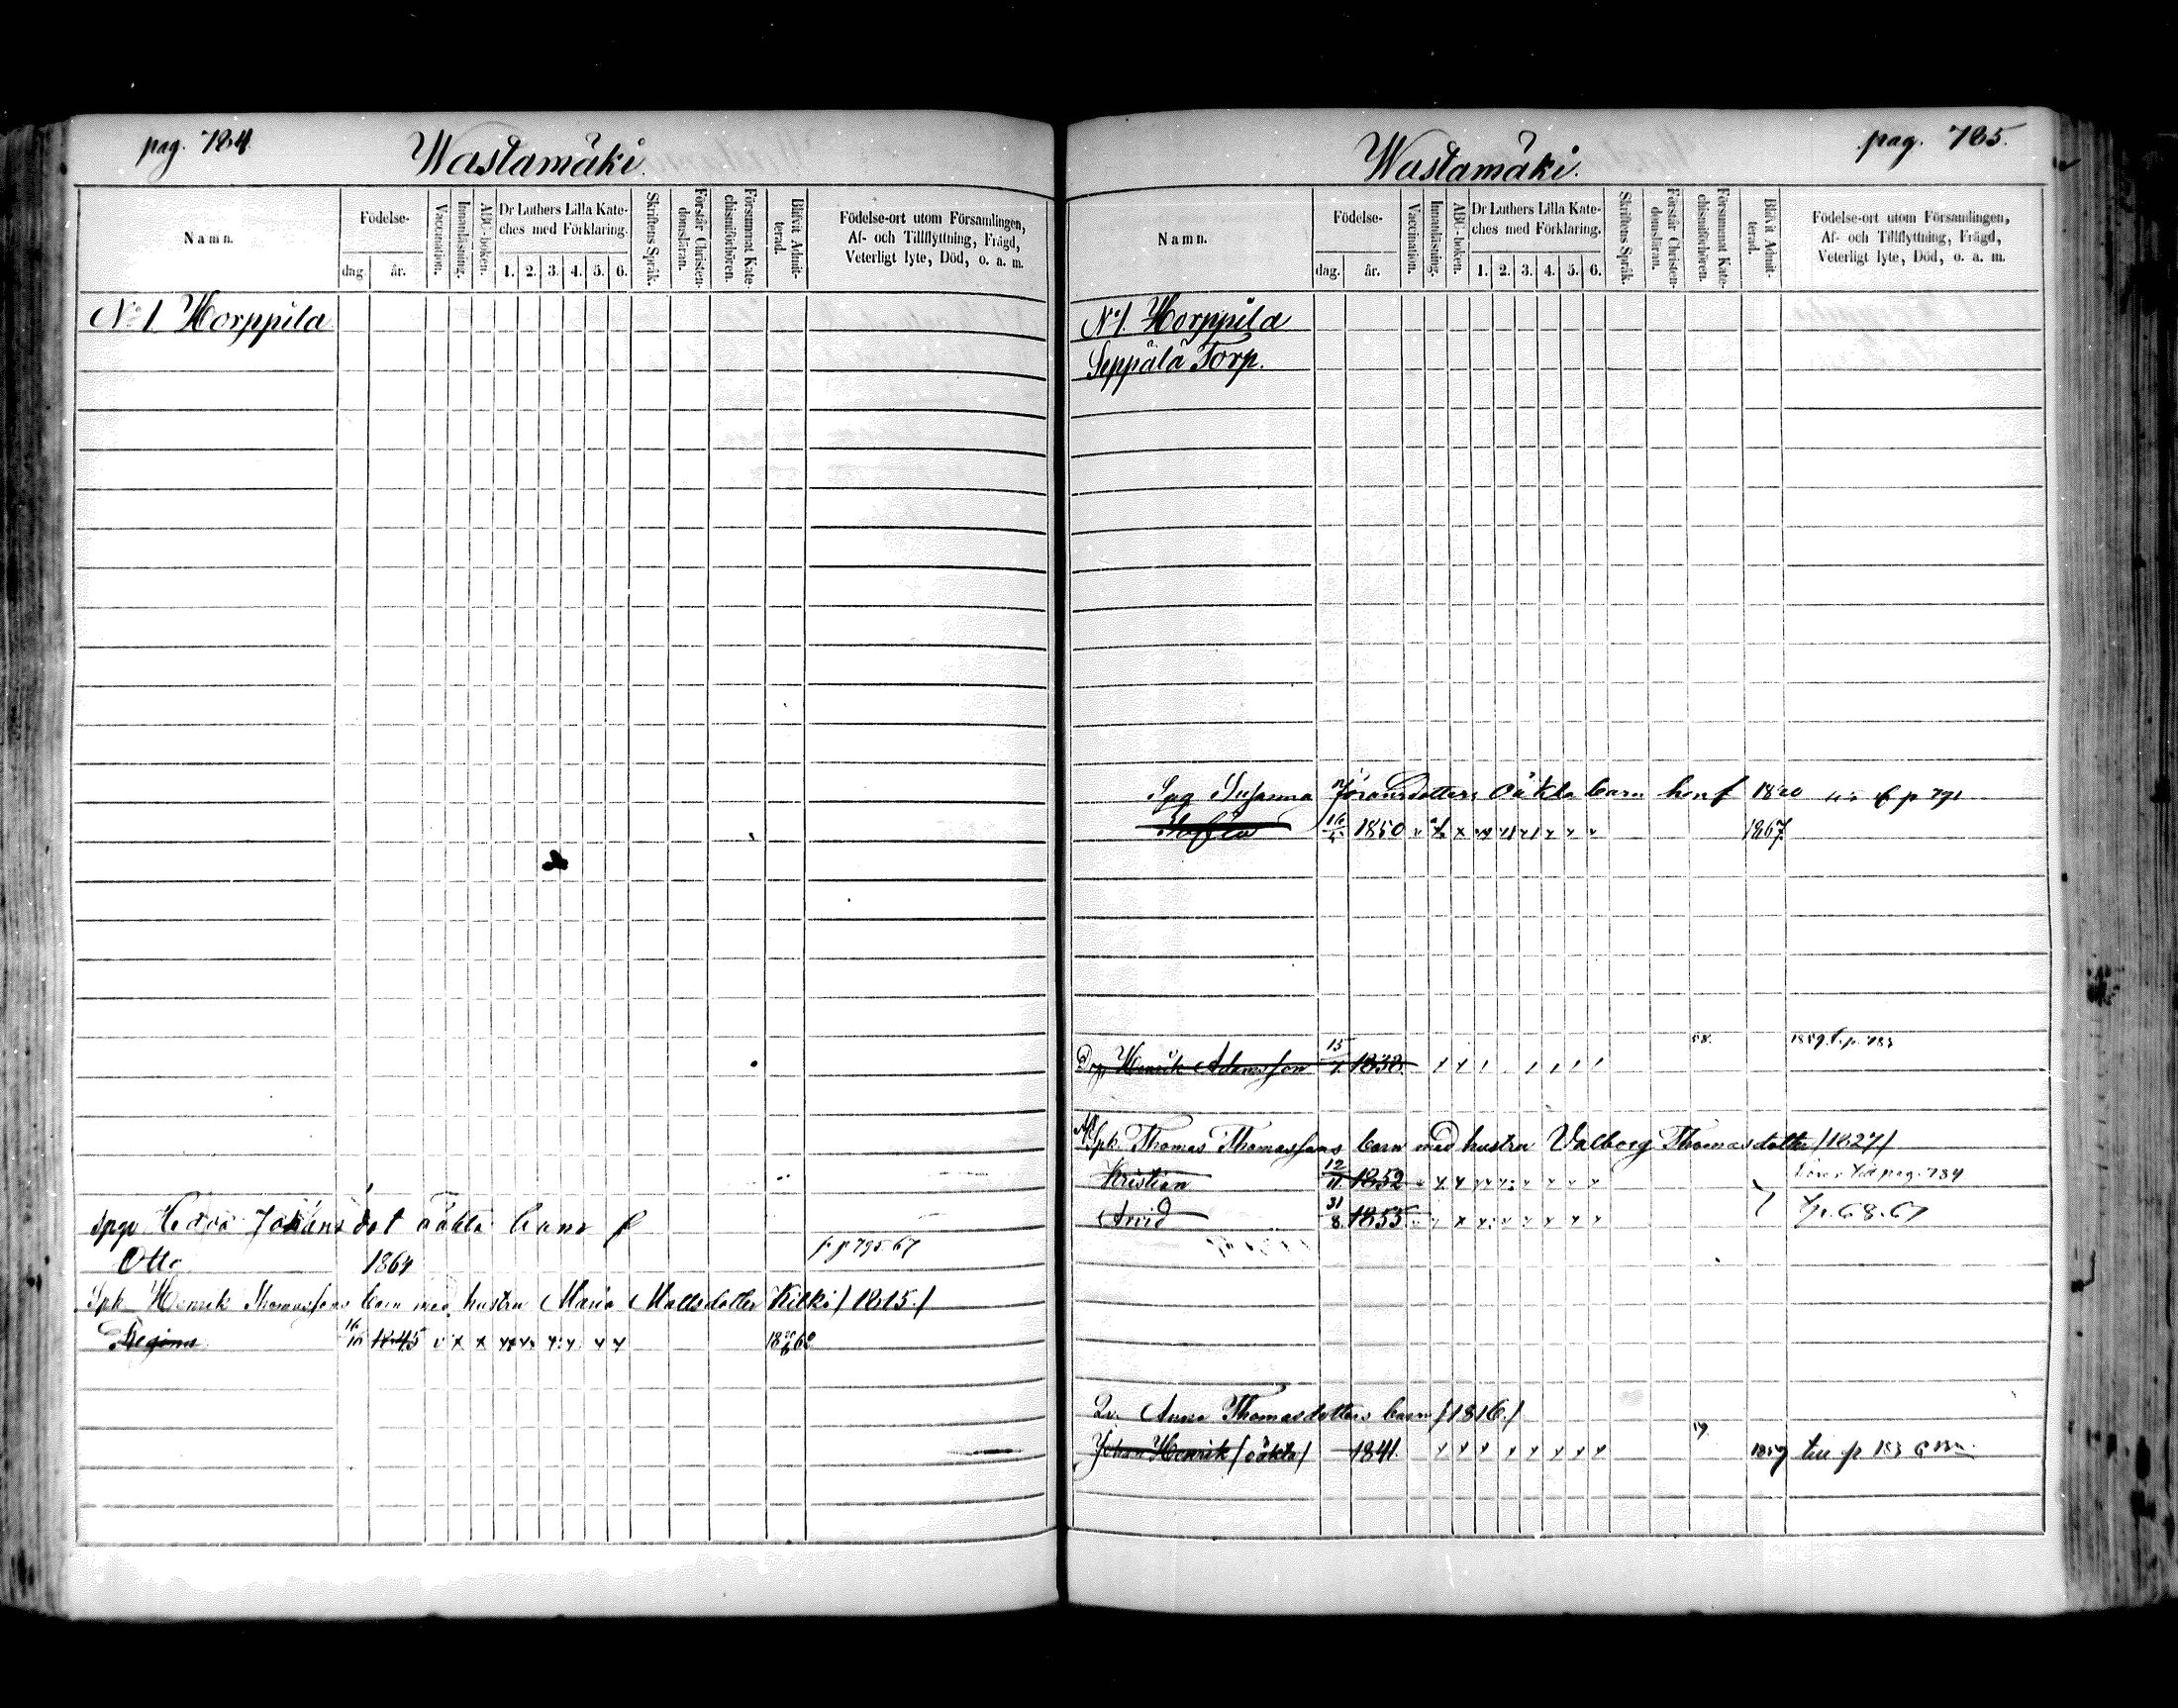 pag. 784.
Wastamäki.
Namn.
Födelse-
dag. år.
Vaccination.
Innanläsning.
ABC-boken.
Dr Luthers Lilla Kate-
ches med Förklaring.
1. 2. 3. 4. 5. 6.
Skriftens Språk.
Förstår Christen-
domsläran.
Försummat Kate-
chismiförhören.
Blifvit Admit-
terad.
Födelse-ort utom Församlingen,
Af- och Tillflyttning, Frägd,
Veterligt lyte, Död, o. a. m.
No 1 Horppila
Johans dot oäkta barn f
Otto 1864 f. p 795. 67
Spk Henrik Thomassons barn med hustru Maria Mattsdotter Kilki / 1815. /
Regina 16/10 1845 v x x
pag. 785.
Wastamäki.
Namn.
Födelse-
dag. år.
Vaccination.
Innanläsning.
ABC-boken.
Dr Luthers Lilla Kate-
ches med Förklaring.
1. 2. 3. 4. 5. 6.
Skriftens Språk.
Förstår Christen-
domsläran.
Försummat Kate-
chismiförhören.
Blifvit Admit-
terad.
Födelse-ort utom Församlingen,
Af- och Tillflyttning, Frägd,
Veterligt lyte, Död, o. a. m.
No 1. Horppila
Seppälä Torp.
Susanna Göransdotters oäkta barn
1850 1867
Henrik Adamsson 15 1838. 58.
Spk. Thomas Thomassons barn med hustru Valborg Thomasdotter / 1827 /
Kristian 12/11 1852 pag. 784
Arvid 31/8 1855
Anna Thomasdotters barn / 1816. /
Johan Henrik / oäkta / 1841.